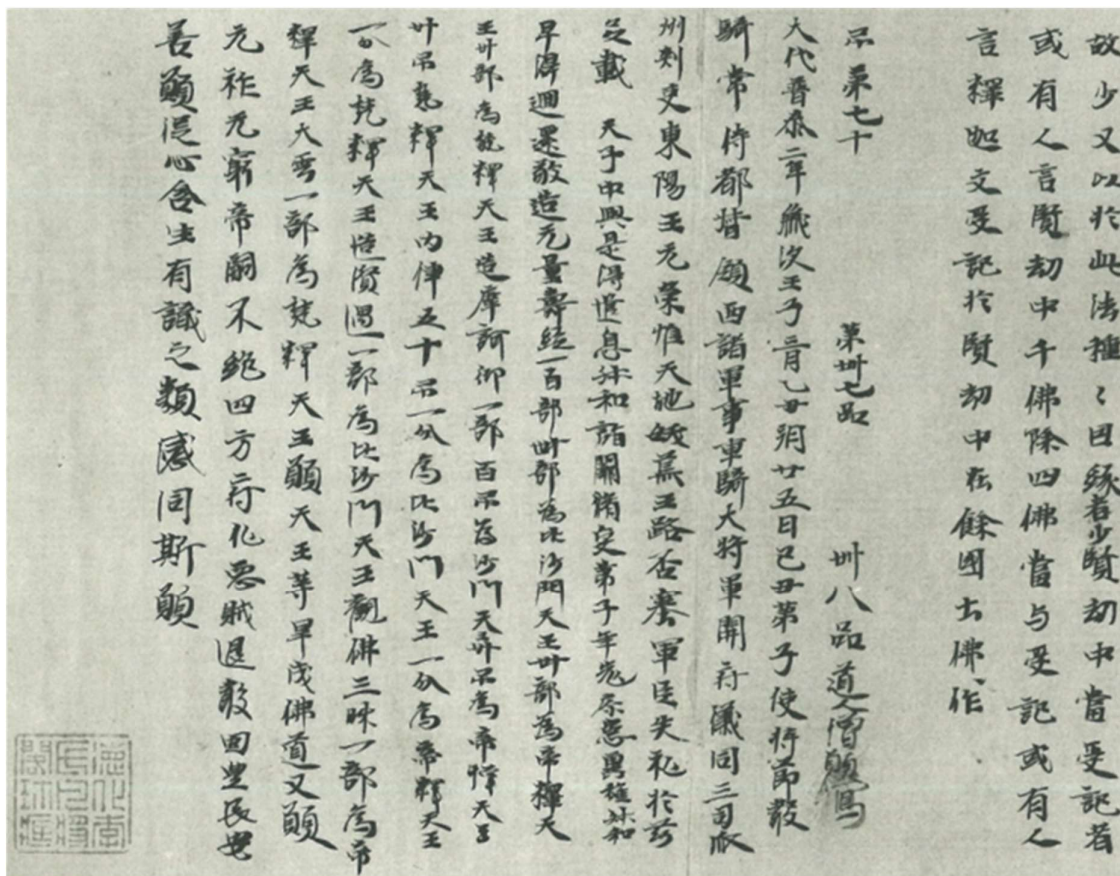 故少又以於此法種〻因緣者少賢劫中當受記者
或有人言賢劫中千佛除四佛當与受記或有人
言釋迦文受記於賢劫中在餘國土佛作
品第七十 第卅七品 卅八品道人僧願寫
大代普泰二年歲次壬子三月乙丑朔廿五日己丑弟子使持節散
騎常侍都督領西諸軍事車騎大將軍開府儀同三司瓜
州刾史東陽王元榮惟天地妖荒王路否塞軍臣失礼於茲
多載 天子中興是得遣息叔和詣闕脩受弟子年老疹患冀望叔和
早得迴還敬造无量壽經一百部卌部為毗沙門天王卅部為帝釋天
王卅部為梵釋天王造摩訶衍一部百弓卅弓為毗沙門天王卅弓為帝釋天王
卅弓梵釋天王內律五十弓一分為毗沙門天王一分為帝釋天王
一分為梵釋天王造賢愚一部為毗沙門天王觀佛三昧一部為帝
釋天王大雲一部為梵釋天王願天王等早成佛道又願
元祚无窮帝嗣不絕四方府化惡賊退散國豐民安
善願從心含生有識之類咸同斯願